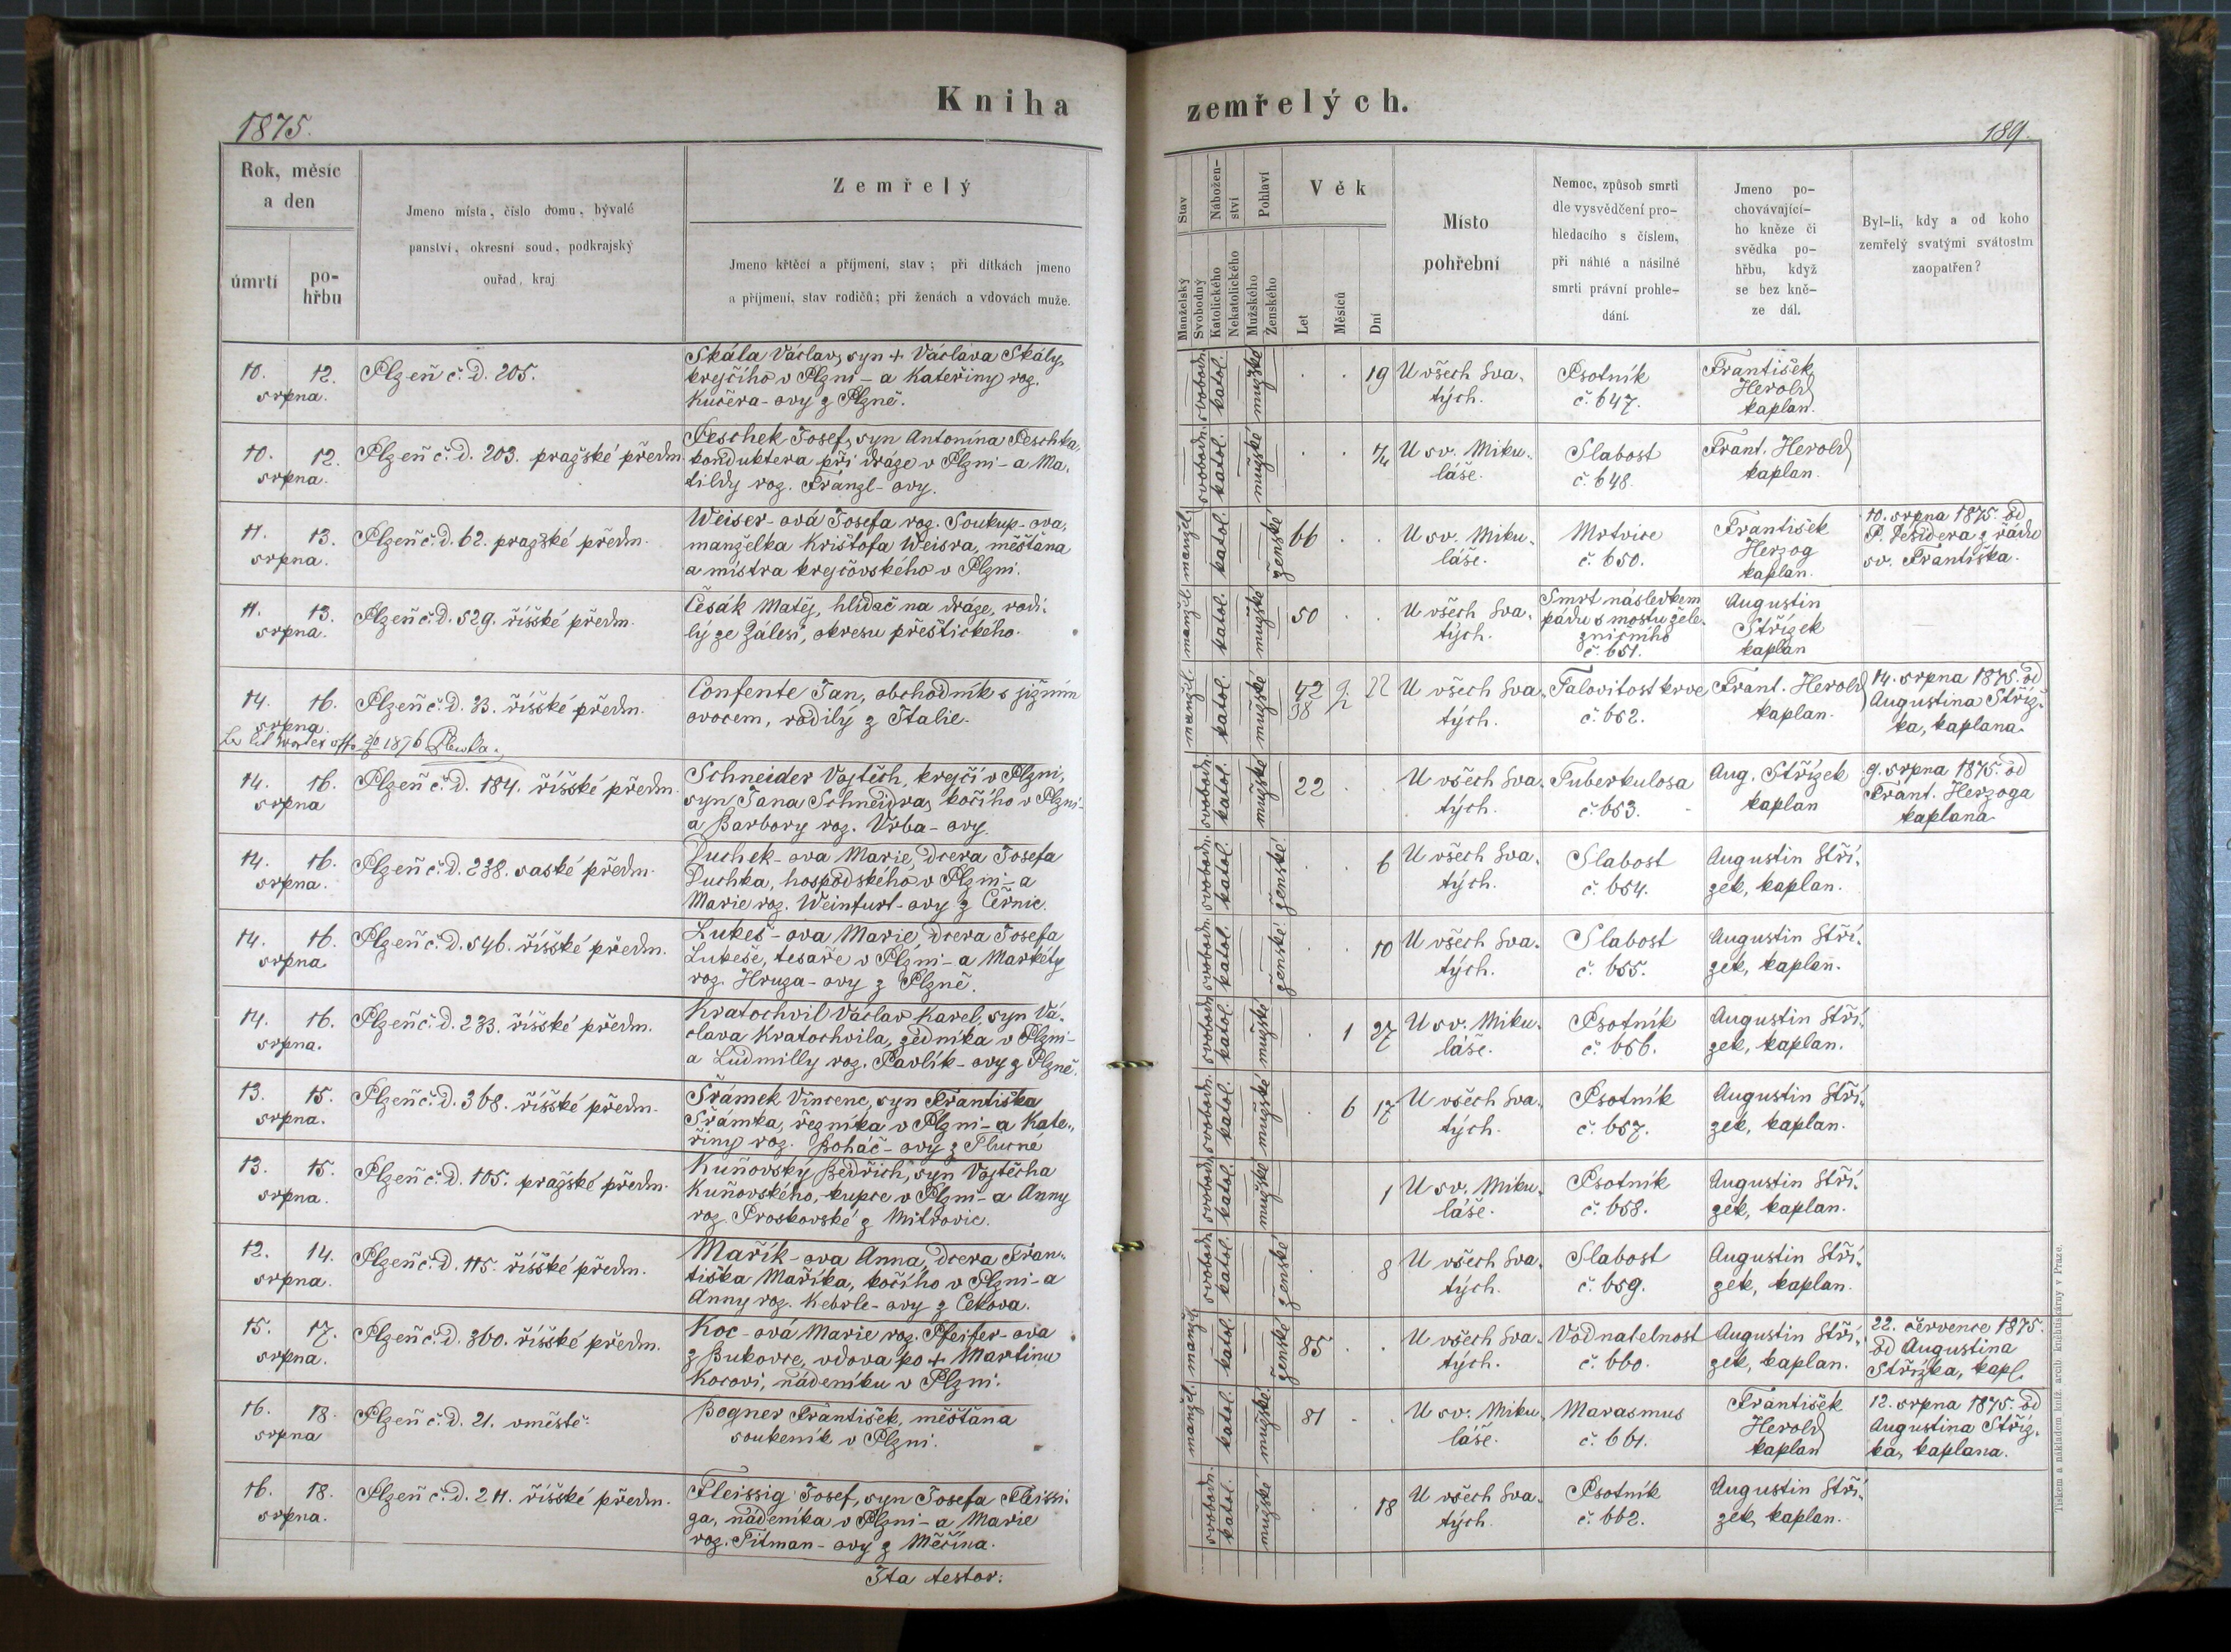 Kniha
1875.
Rok, měsíc
a den
úmrtí
po-
hřbu
Jmeno místa, číslo domu, bývalé
panství, okresní soud, podkrajský
ouřad, kraj
Zemřelý
Jmeno křtěcí a příjmení, stav; při dítkách jmeno
a příjmení, stav rodičů; při ženách a vdovách muže.
10. 12.
srpna.
Plzeň č. d. 205.
Skála Václav, syn + Václava Skály,
krejčího v Plzni - a Kateřiny roz.
Kučera-ovy z Plzně.
10. 12.
srpna.
Plzeň č. d. 203. pražské předm.
Peschek Josef, syn Antonína Peschka,
konduktera při dráze v Plzni - a Ma-
tildy roz. Fränzl-ovy.
11. 13.
srpna.
Plzeň č. d. 62. pražské předm.
Weiser-ová Josefa roz. Soukup-ova,
manželka Krištofa Weisra, měšťana
a mistra krejčovského v Plzni.
11. 13.
srpna.
Plzeň č. d. 529. říšské předm.
Česák Matěj, hlídač na dráze, rodi-
lý ze Zálesí, okresu přeštického.
14. 16.
srpna.
Plzeň č. d. 33. říšské předm.
Confente Jan, obchodník s jižním
ovocem, rodilý z Italie.
1876
14. 16.
srpna
Plzeň č. d. 184. říšské předm.
Schneider Vojtěch, krejčí v Plzni,
syn Jana Schneidra, kočího v Plzni -
a Barbory roz. Vrba-ovy.
14. 16.
srpna.
Plzeň č. d. 238. saské předm.
Duchek-ova Marie, dcera Josefa
Duchka, hospodského v Plzni - a
Marie roz. Weinfurt-ovy z Černic.
14. 16.
srpna
Plzeň č. d. 546. říšské předm.
Lukeš-ova Marie, dcera Josefa
Lukeše, tesaře v Plzni - a Markéty
roz. Hruza-ovy z Plzně.
14. 16.
srpna.
Plzeň č. d. 233. říšské předm.
Kratochvil Václav Karel, syn Vá-
clava Kratochvila, zedníka v Plzni -
a Ludmilly roz. Pavlík-ovy z Plzně.
13. 15.
srpna.
Plzeň č. d. 368. říšské předm.
Šrámek Vincenc, syn Františka
Šrámka, řezníka v Plzni - a Kate-
řiny roz. Boháč-ovy z Plucné
13. 15.
srpna.
Plzeň č. d. 105. pražské předm.
Kuňovský Bedřich, syn Vojtěcha
Kuňovského, kupce v Plzni - a Anny
roz. Proskovské z Mitrovic.
12. 14.
srpna.
Plzeň č. d. 115. říšské předm.
Mařík-ova Anna, dcera Fran-
tiška Maříka, kočího v Plzni - a
Anny roz. Kebrle-ovy z Cekova.
15. 17.
srpna.
Plzeň č. d. 360. říšské předm.
Koc-ová Marie roz. Pfeifer-ova
z Bukovce, vdova po + Martinu
Kocovi, nádeníku v Plzni.
16. 18.
srpna
Plzeň č. d. 21. v městě.
Bogner František, měšťana
soukeník v Plzni.
16. 18.
srpna.
Plzeň č. d. 211. říšské předm.
Fleissig Josef, syn Josefa Fleissi-
ga, nádeníka v Plzni - a Marie
roz. Titman-ovy z Měčína.
Ita testor:
zemřelých.
189.
Stav
Manželský
Svobodný
Nábožen-
ství
Katolického
Nekatolického
Pohlaví
Mužského
Ženského
Věk
Let
Měsíců
Dní
Místo
pohřební
Nemoc, způsob smrti
dle vysvědčení pro-
hledacího s číslem,
při náhlé a násilné
smrti právní prohle-
dání.
Jmeno po-
chovávající-
ho kněze či
svědka po-
hřbu, když
se bez kně-
ze dál.
Byl-li, kdy a od koho
zemřelý svatými svátostmi
zaopatřen?
svobodn. katol. mužské
19
U všech Sva-
tých.
Psotník
č. 647.
František
Herold
kaplan.
svobodn. katol. mužské
U sv. Miku-
láše.
Slabost
č. 648.
Frant. Herold
kaplan.
manžel. katol. ženské
66
U sv. Miku-
láše.
Mrtvice
č. 650.
František
Herzog
kaplan.
10. srpna 1875. od
P. Desidera z řádu
sv. Františka.
manžel. katol. mužské
50
U všech Sva-
tých.
Smrt následkem
pádu s mostu žele-
zničního
č. 651.
Augustin
Střízek
kaplan
manžel. katol. mužské
U všech Sva-
tých.
Jalovitost krve
č. 652.
Frant. Herold
kaplan.
14. srpna 1875. od
Augustina Stříz-
ka, kaplana.
svobodn. katol. mužské
22
U všech Sva-
tých.
Tuberkulosa
č. 653.
Aug. Střízek
kaplan
9. srpna 1875. od
Frant. Herzoga
kaplana
svobodn. katol. ženské
6
U všech Sva-
tých.
Slabost
č. 654.
Augustin Stří-
zek, kaplan.
svobodn. katol. ženské
10
U všech Sva-
tých.
Slabost
č. 655.
Augustin Stří-
zek, kaplan.
svobodn. katol. mužské
1 27
U sv. Miku-
láše.
Psotník
č. 656.
Augustin Stří-
zek, kaplan.
svobodn. katol. mužské
6 17
U všech Sva-
tých.
Psotník
č. 657.
Augustin Stří-
zek, kaplan.
svobodn. katol. mužské
1
U sv. Miku-
láše.
Psotník
č. 658.
Augustin Stří-
zek, kaplan.
svobodn. katol. ženské
8
U všech Sva-
tých.
Slabost
č. 659.
Augustin Stří-
zek, kaplan.
manžel. katol. ženské
85
U všech Sva-
tých.
Vodnatelnost
č. 660.
Augustin Stří-
zek, kaplan.
22. července 1875.
od Augustina
Střízka, kapl.
manžel. katol. mužské
81
U sv. Miku-
láše.
Marasmus
č. 661.
František
Herold
kaplan
12. srpna 1875. od
Augustina Stříz-
ka, kaplana.
svobodn. katol. mužské
18
U všech Sva-
tých.
Psotník
č. 662.
Augustin Stří-
zek, kaplan.
Tiskem a nákladem kníž. arcib. knihtiskárny v Praze.